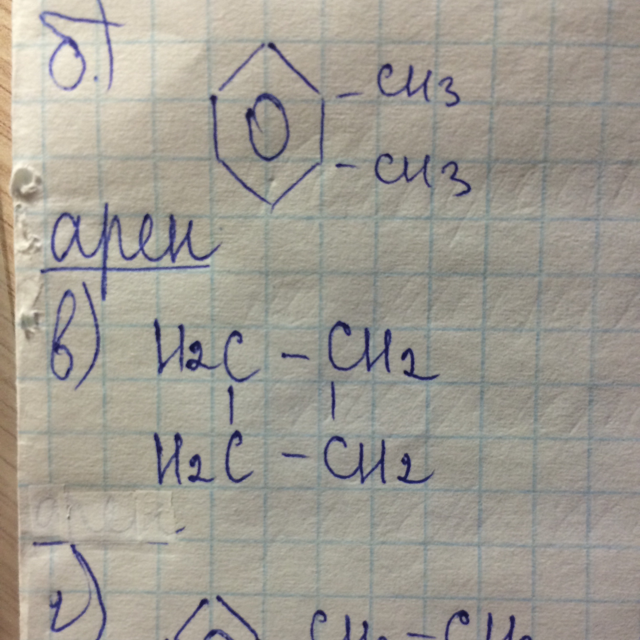 б)
-CH3
-CH3
арен
в)
H2C-CH2
H2C-CH2
г)